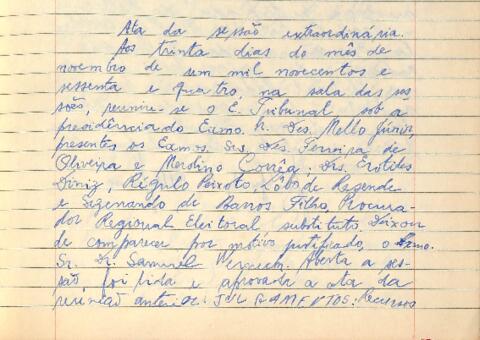 Ata da sessão extraordinária.
Aos trinta dias do mês de
novembro de um mil novecentos e
sessenta e quatro, na sala das ses-
sões, reuniu-se o E. Tribunal sob a
presidência do Exmo. Sr. Des. Mello Júnior,
presentes os Exmos. Srs. Des. Ferreira de
Oliveira e Merolino Corrêa, Drs. Erotides
Diniz, Régulo Peixoto, Lôbo de Rezende
e Sigenando de Barros Filho, Procura-
dor Regional Eleitoral, substituto. Deixou
de comparecer por motivo justificado, o Exmo.
Sr. Dr. Samuel. Aberta a ses-
são foi lida e aprovada a ata da
reunião anterior. JULGAMENTOS: Recursos